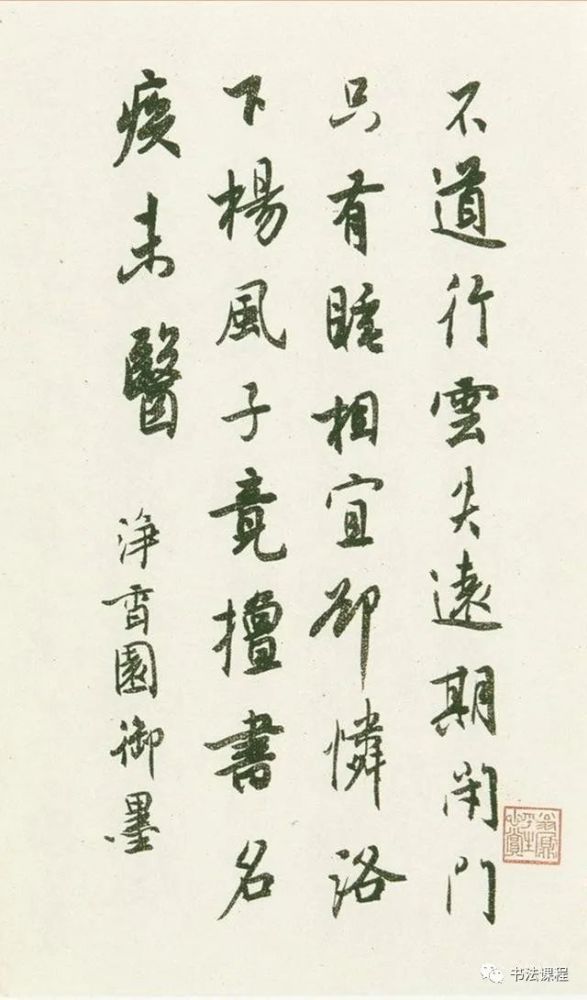 不道行雲失遠期閉門
只有睡相宜卻憐洛
下楊風子竟擅書名
疾未醫
淨香園御墨
書法课程